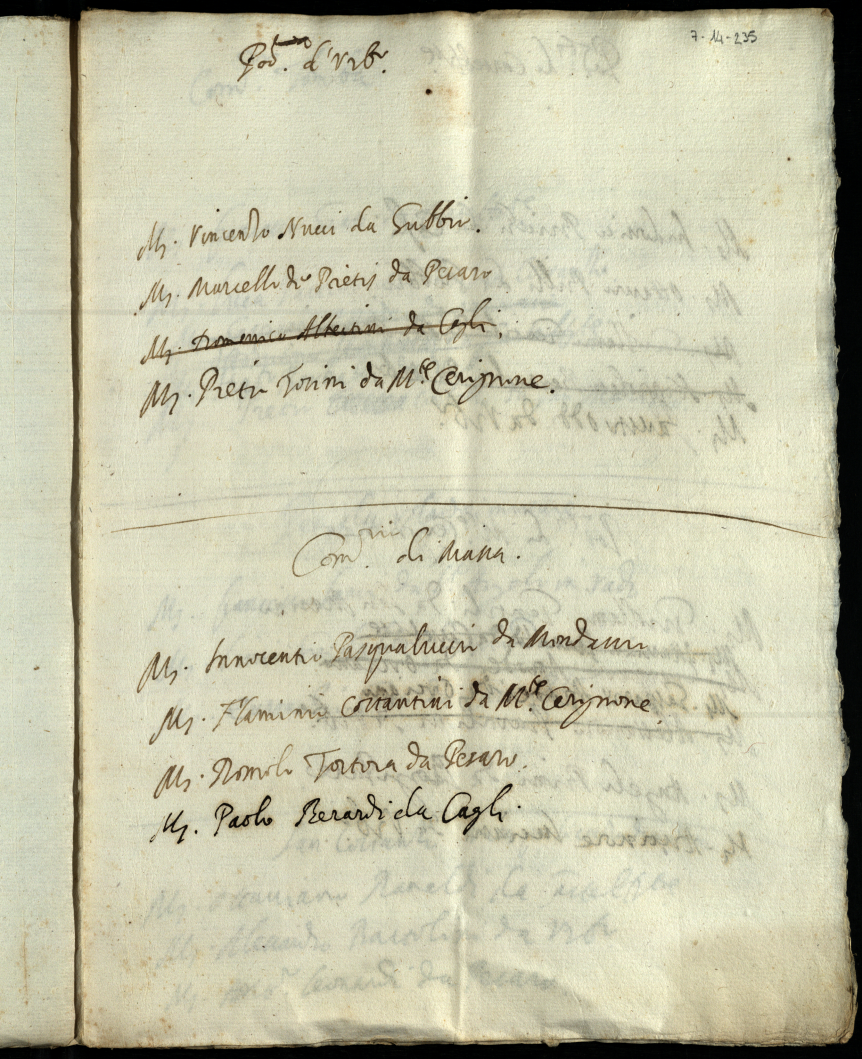 7-14-235
Pod.ta d'Urb.o
Mr. Vincenzo Nucci da Gubbio.
Mr. Marcello de Pretis da Pesaro
Mr. Domenico Albertini da Cagli.
Mr. Pietro Torini da M.te Cerignone.
Com.rii di Massa.
Mr. Innocentio Pasqualucci da Mondavio
Mr. Flaminio Costantini da M.te Cerignone
Mr. Romolo Tortora da Pesaro.
Mr. Paolo Berardi da Cagli.